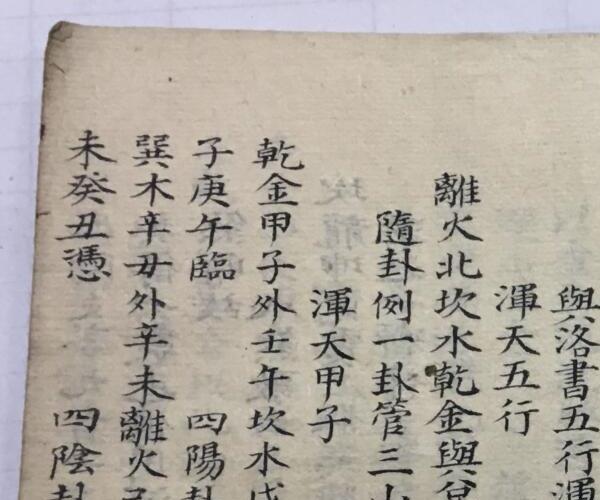 與洛書五行渾
渾天五行
離火北坎水乾金與兌
隨卦例一卦管三山
渾天甲子
乾金甲子外壬午坎水戊
子庚午臨 四陽卦
巽木辛丑外辛未離火己
未癸丑憑 四陰卦